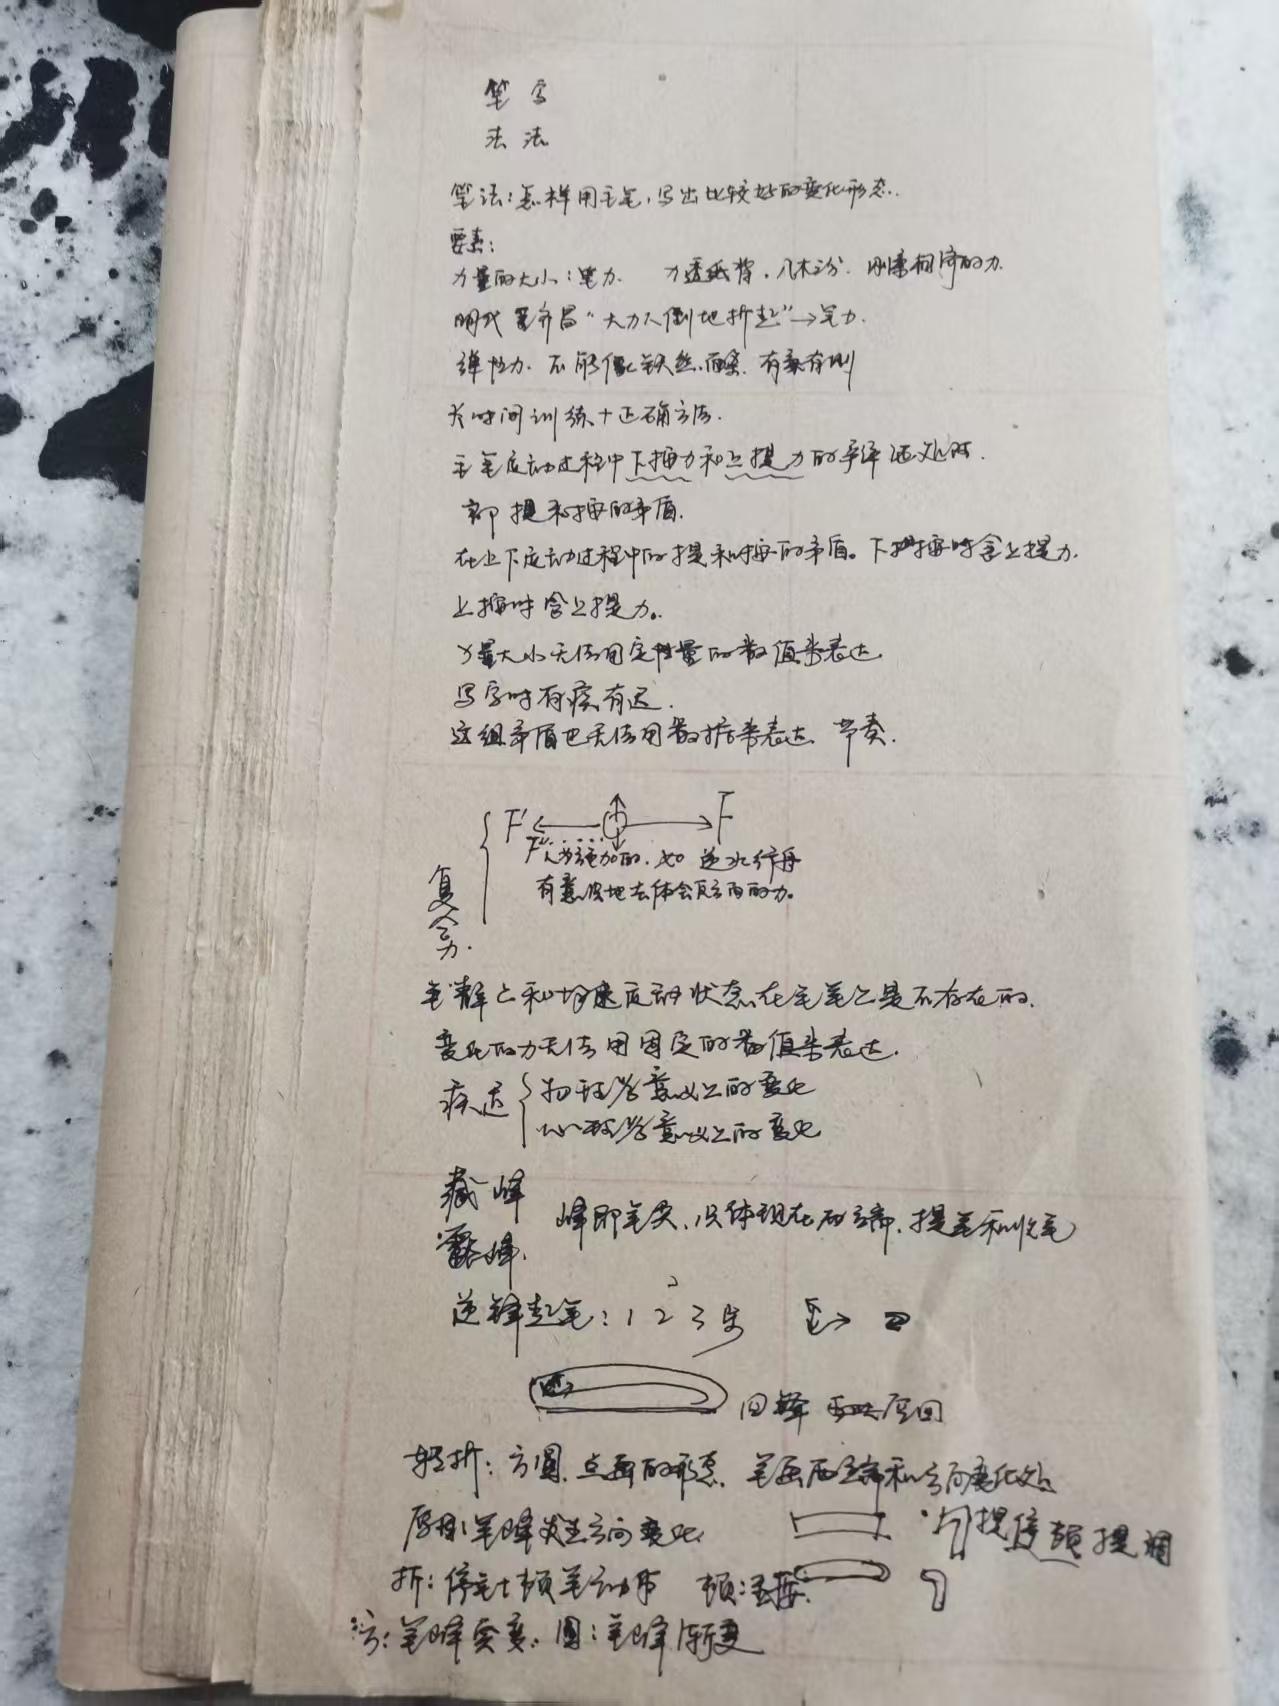 笔 字
法 法
笔法：怎样用毛笔，写出比较好的变化形态．
要素：
力量的大小：笔力． 力透纸背，入木三分． 刚柔相济的力．
明代 董其昌“大力人倒地折起”→笔力．
弹性力． 不能像铁丝， 有柔有刚
长时间训练＋正确方法．
毛笔运动过程中下按力和上提力的辩证处理．
即 提和按的矛盾．
在上下运动过程中的提和按的矛盾。下按时含上提力．
上按时含上提力．
力量大小无法固定性量的数值来表达
写字时有疾有迟．
这组矛盾也无法用数据来表达 节奏．
复合力．
F' F
F'人为施加的．如 逆水行舟
有意识地去体会反方向的力．
静止和均速运动状态在毛笔上是不存在的．
变化的力无法用固定的数值来表达．
疾迟
物理学意义上的变化
心理学意义上的变化
藏峰
露峰．
峰即笔尖．只体现在两端．提笔和收笔
逆锋起笔：1 2 3步
回锋 原回
转折：方圆．点画的形态． 笔画两端和方向变化处
原因：笔峰发生方向变化
提停顿提调
折：停笔＋顿笔动作 顿：重按
方：笔峰突变． 圆：笔峰渐变